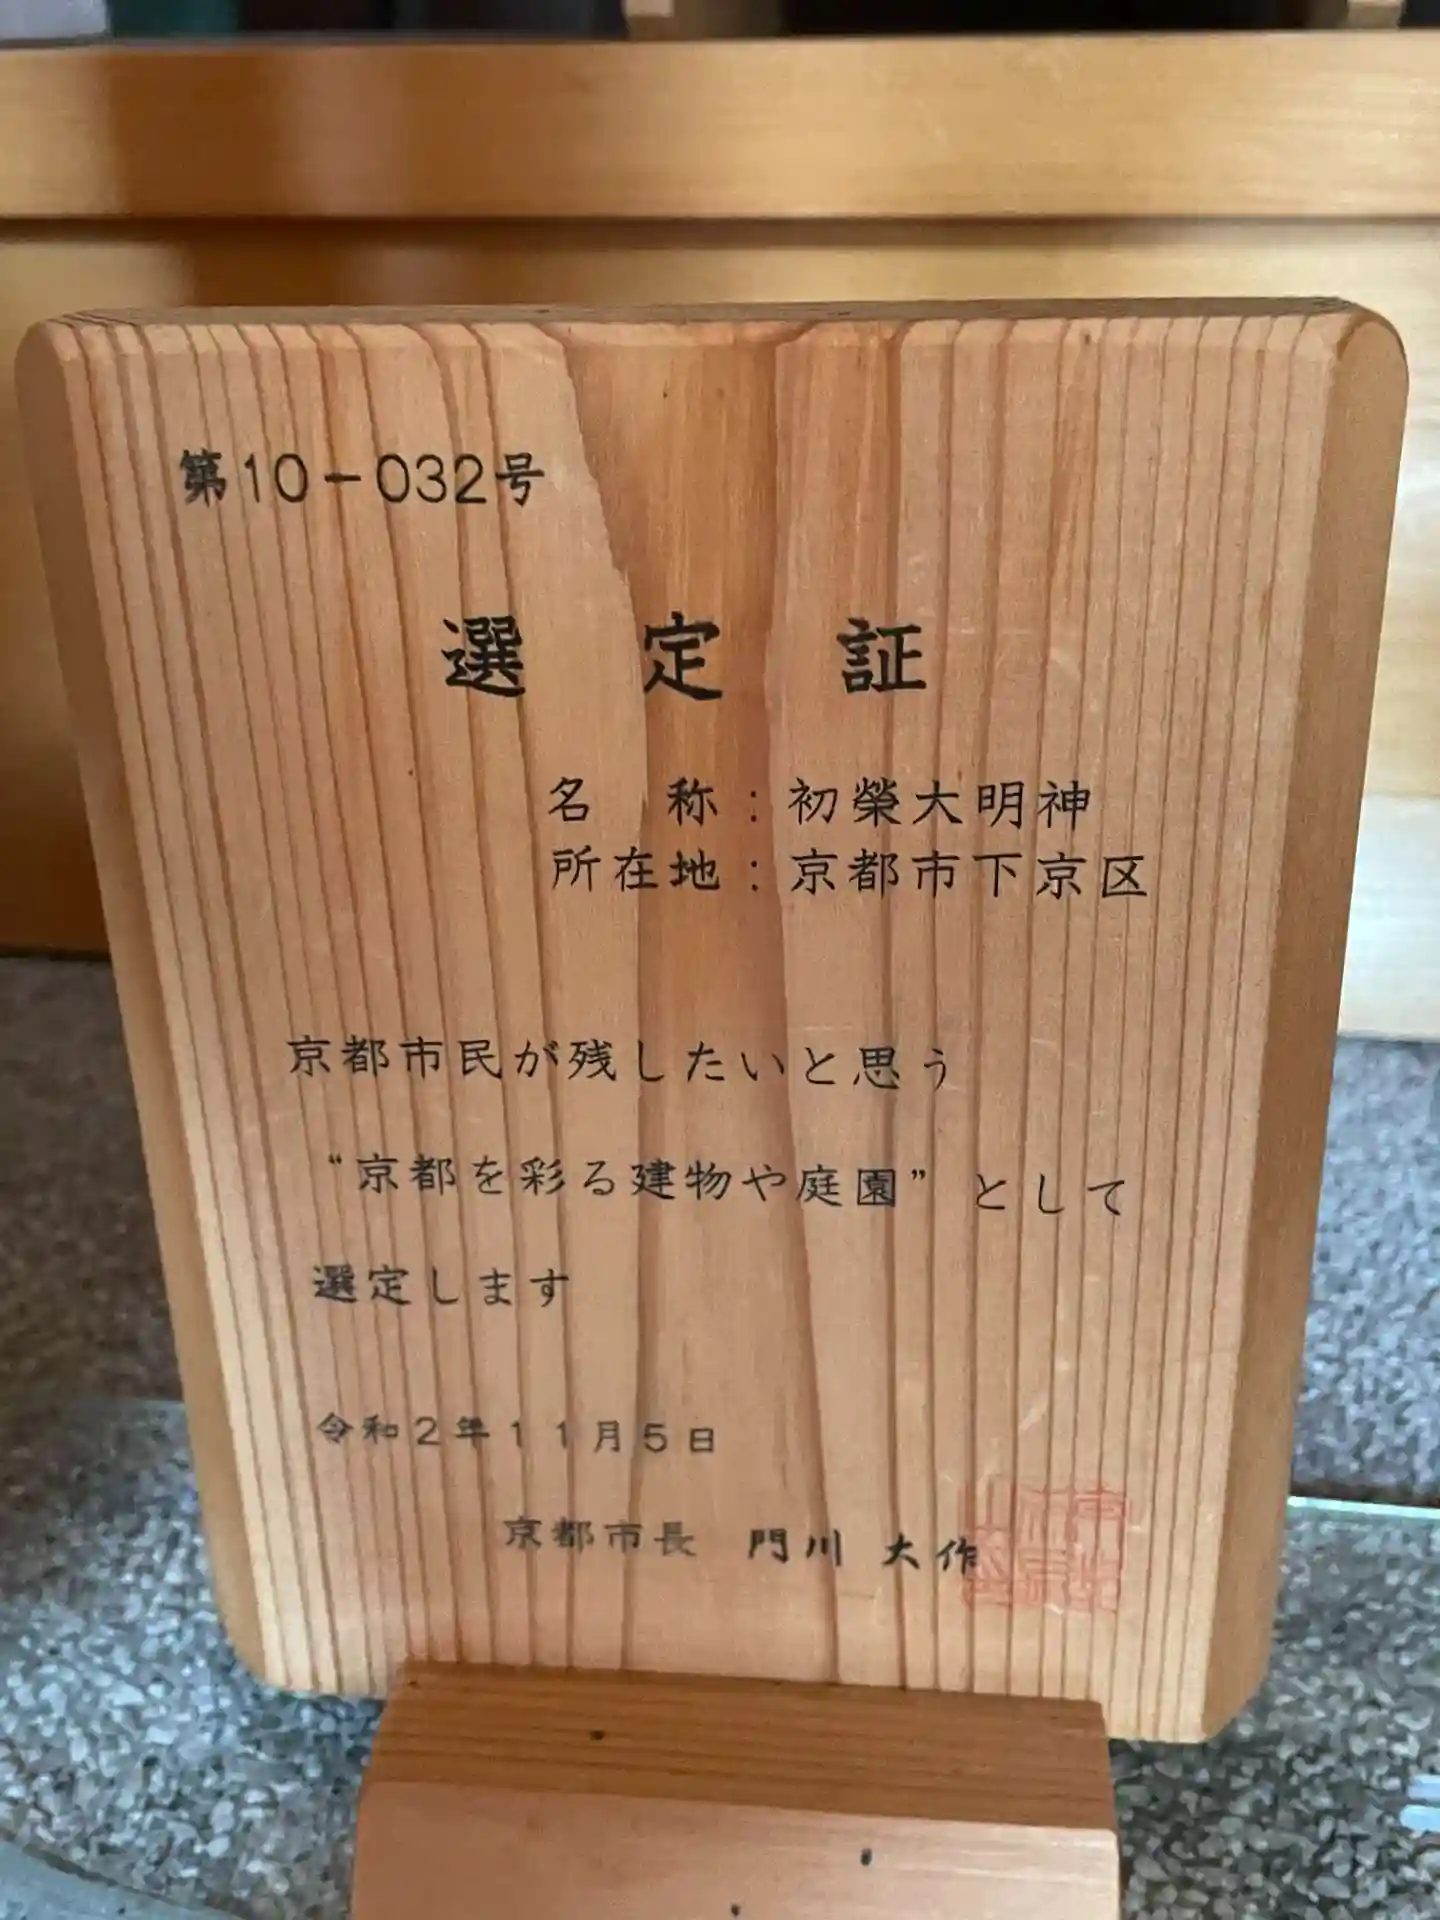 第10-032号
選定証
名 称：初榮大明神
所在地：京都市下京区
京都市民が残したいと思う
“京都を彩る建物や庭園”として
選定します
令和2年11月5日
京都市長 門川 大作